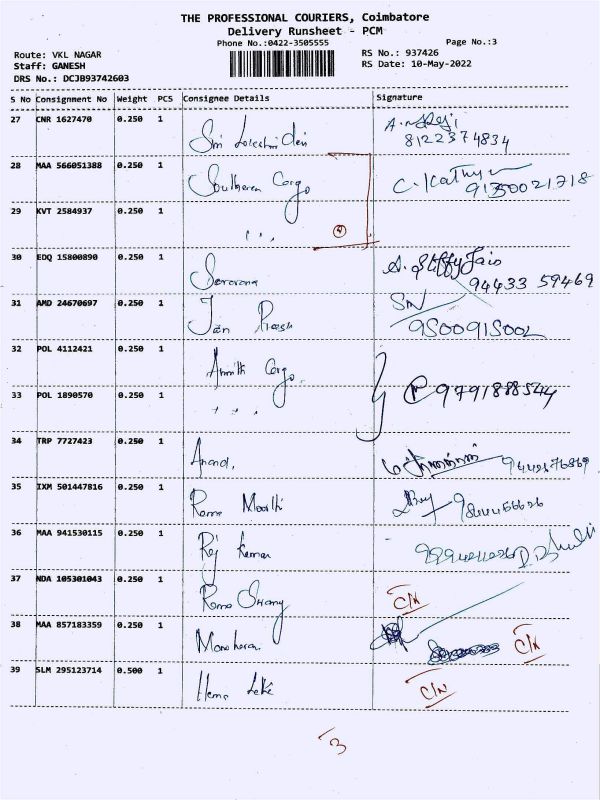 THE PROFESSIONAL COURIERS, Coimbatore
Delivery Runsheet - PCM
Phone No.:0422-3505555
Page No.:3
Route: VKL NAGAR
RS No.: 937426
Staff: GANESH
RS Date: 10-May-2022
DRS No.: DCJB93742603
S No Consignment No Weight PCS Consignee Details Signature
27 CNR 1627470 0.250 1 Sri
8122374834
28 MAA 566051388 0.250 1 Southeren Cargo C. Kathy
29 KVT 2584937 0.250 1 " "
30 EDQ 15800890 0.250 1 Saravana A. Steffy Jais
94433 59469
31 AMD 24670697 0.250 1 SN
9500915002
32 POL 4112421 0.250 1 Cargo
33 POL 1890570 0.250 1 " " " 9791888544
34 TRP 7727423 0.250 1 Anand,
35 IXM 501447816 0.250 1 Rama Moorthi
36 MAA 941530115 0.250 1 Raj Kumar
37 NDA 105301043 0.250 1 Rama Swamy C/N
38 MAA 857183359 0.250 1 Manoharan C/N
39 SLM 295123714 0.500 1 Hema C/N
3